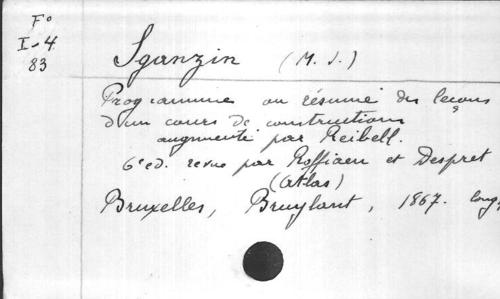 Fo
I-4
83
Sganzin (M. J.)
Programme ou résumé des leçons
d'un cours de constructions
augmenté par Reibell.
6e ed. revue par Roffiaen et Despret
(atlas)
Bruxelles, Bruylant, 1867. long.